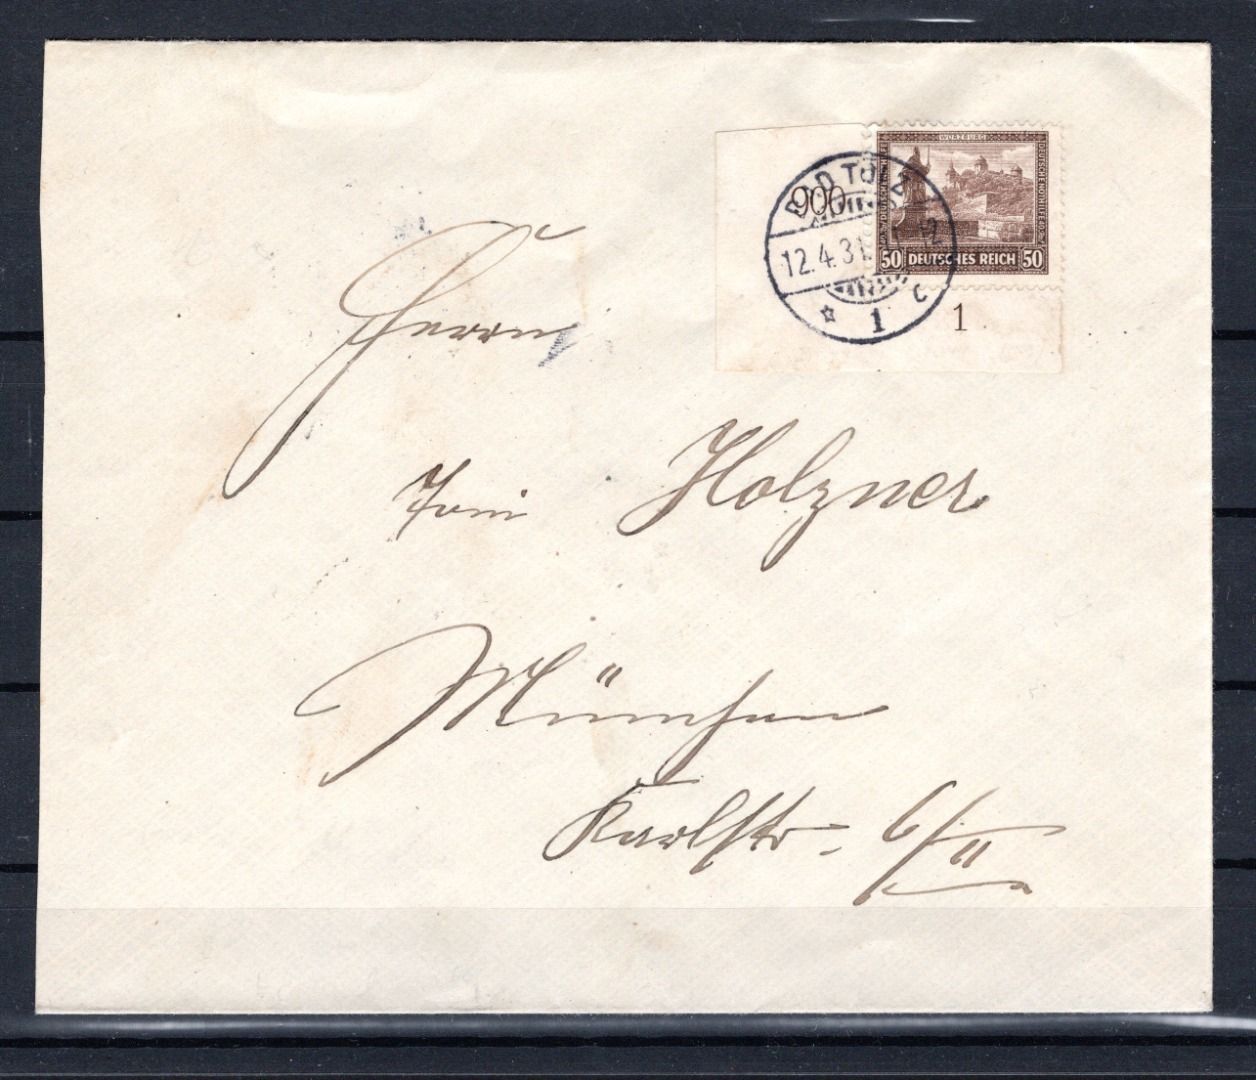 900
WÜRZBURG
DEUTSCHE NOTHILFE
50 DEUTSCHES REICH 50
BAD TÖLZ
12.4.31.
1 c
1
Herrn
Toni Holzner
München
Karlstr. 6/II